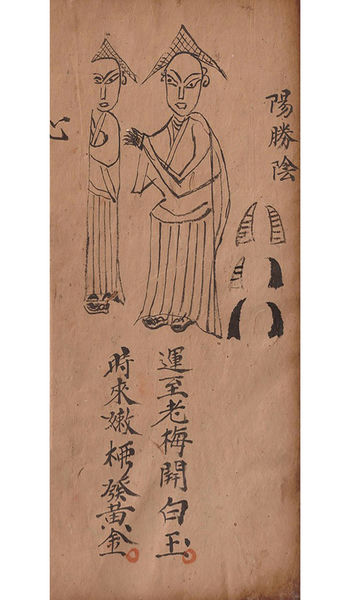 陽勝陰
運至老梅開白玉
時來嫩桺發黃金